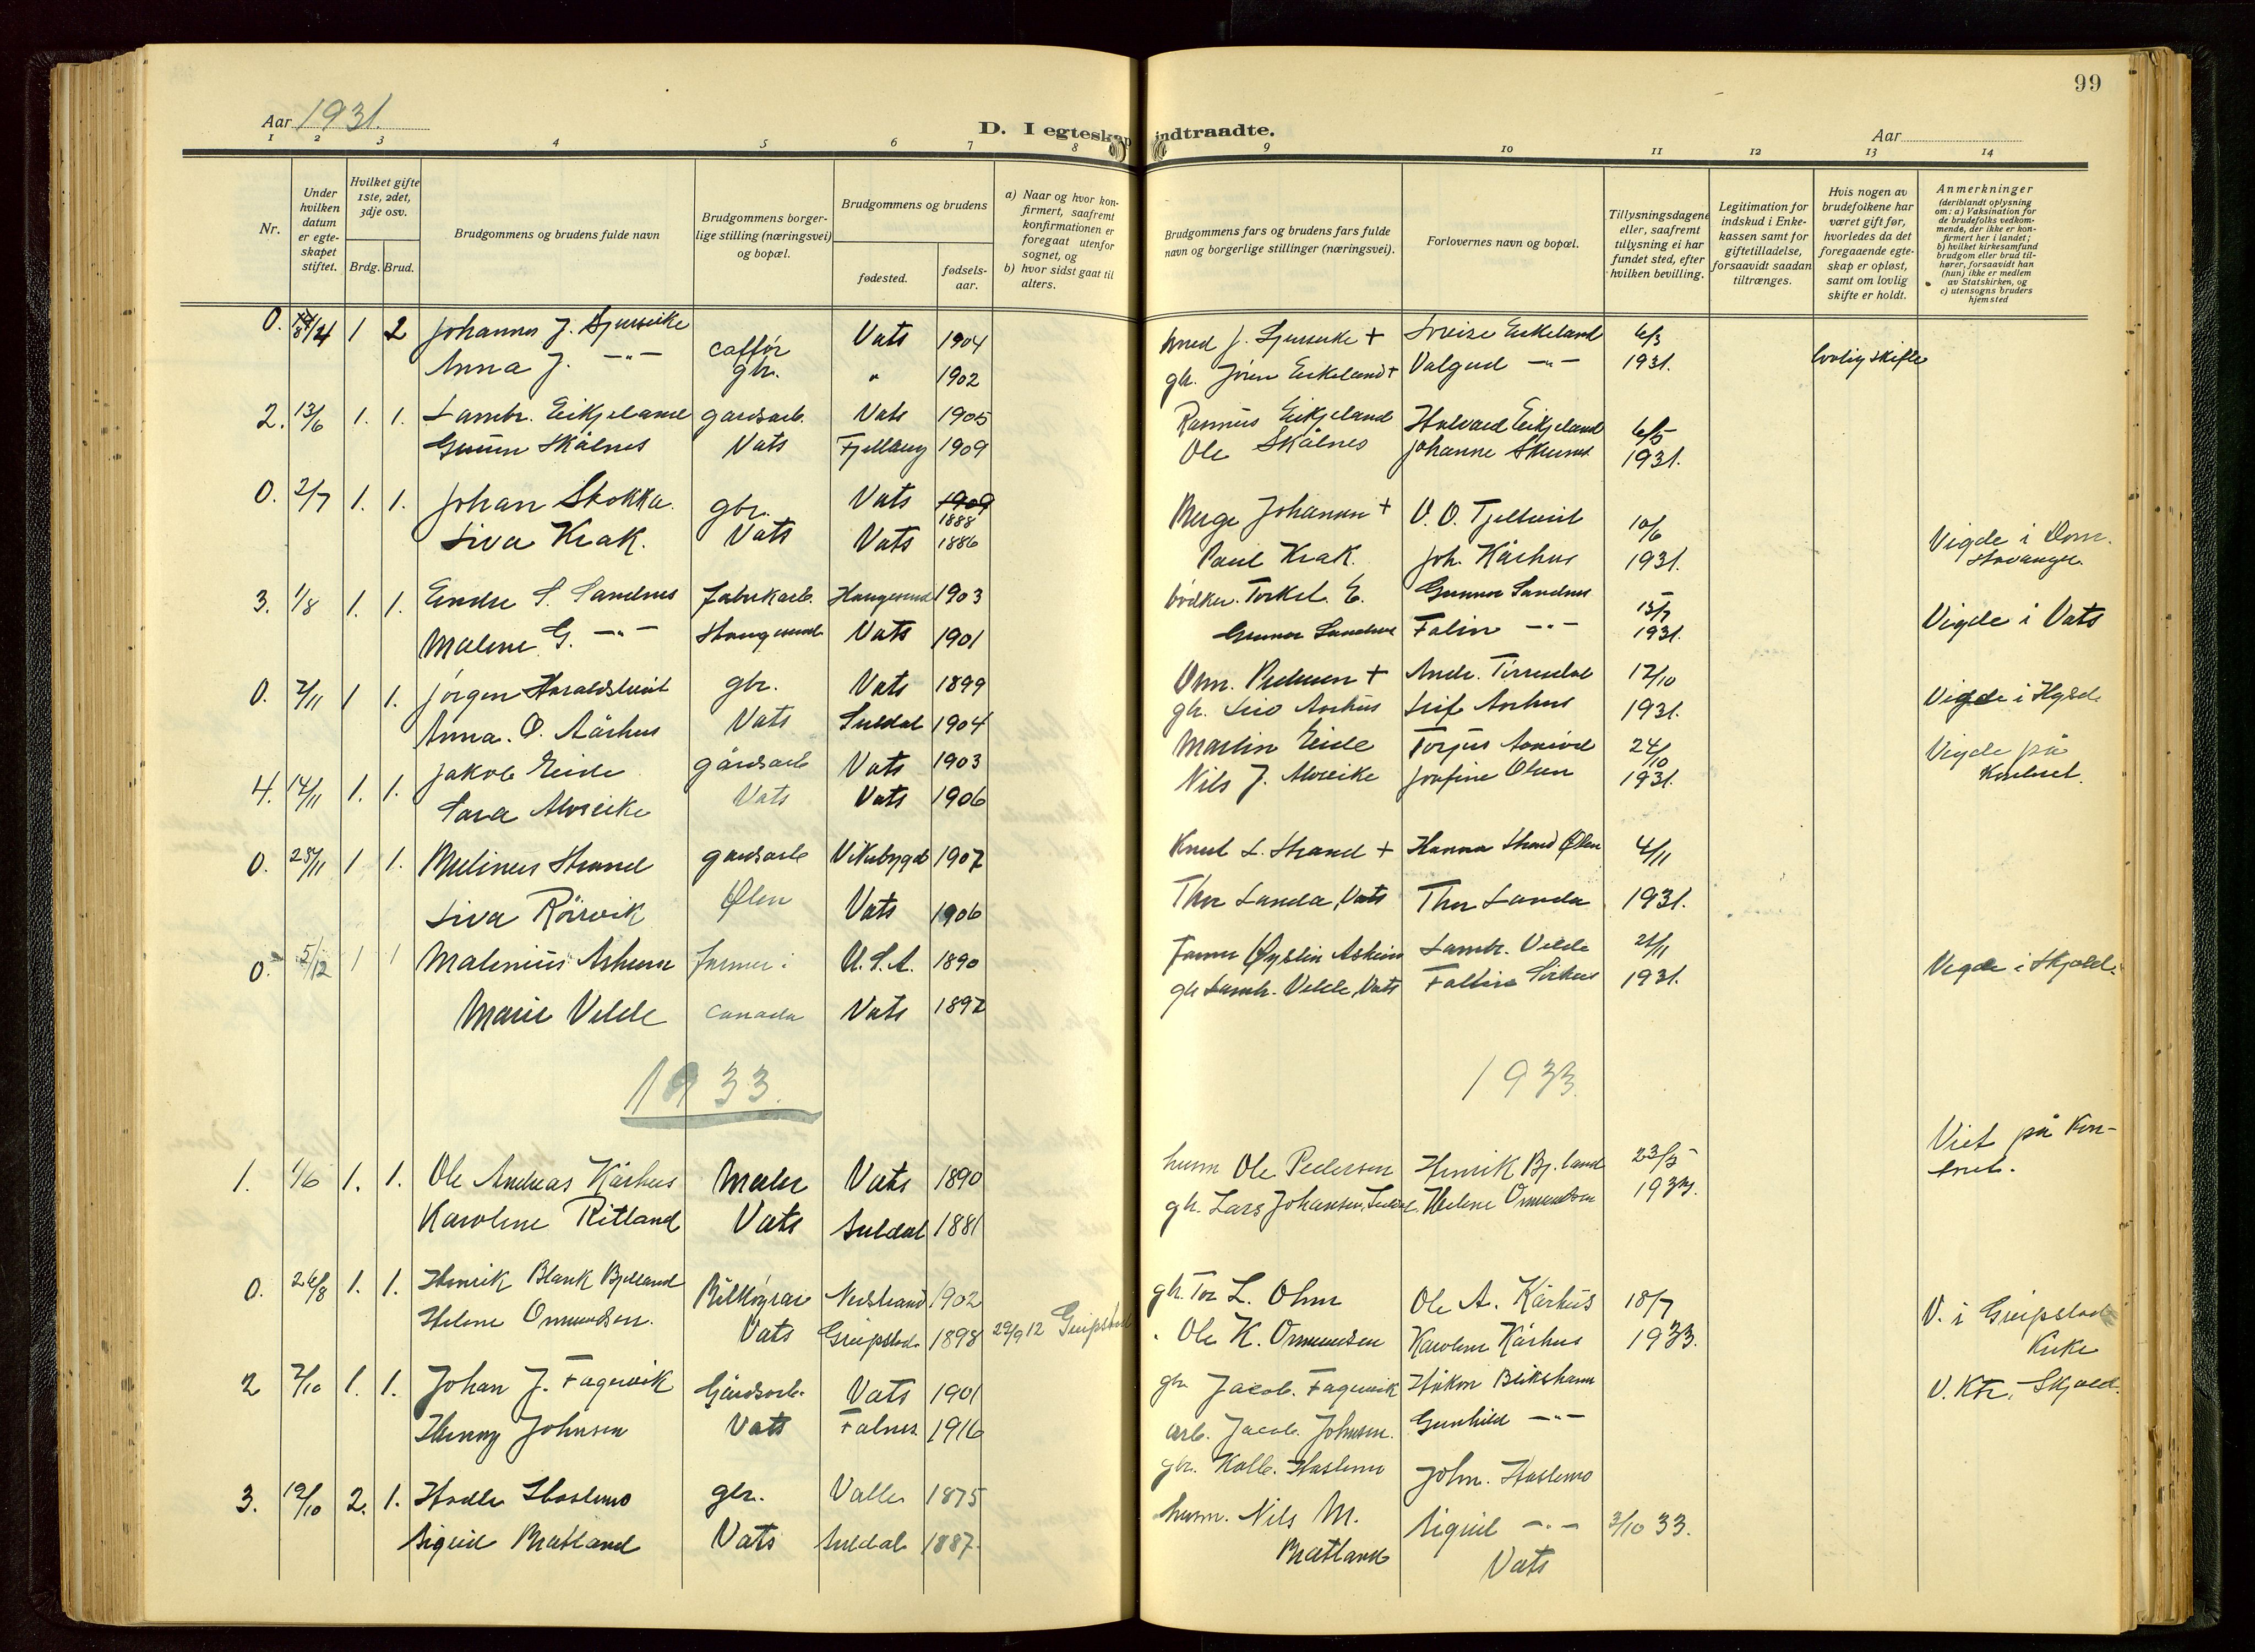 99
Aar 1931.
D. I egteskap indtraadte.
Aar
1 2 3 4 5 6 7 8 9 10 11 12 13 14
Nr.
Under hvilken datum er egteskapet stiftet.
Hvilket gifte 1ste, 2det, 3dje osv.
Brdg. Brud.
Brudgommens og brudens fulde navn
Brudgommens borgerlige stilling (næringsvei) og bopæl.
Brudgommens og brudens
fødested.
fødselsaar.
a) Naar og hvor konfirmert, saafremt konfirmationen er foregaat utenfor sognet, og
b) hvor sidst gaat til alters.
Brudgommens fars og brudens fars fulde navn og borgerlige stillinger (næringsvei).
Forlovernes navn og bopæl.
Tillysningsdagene eller, saafremt tillysning ei har fundet sted, efter hvilken bevilling.
Legitimation for indskud i Enkekassen samt for giftetilladelse, forsaavidt saadan tiltrænges.
Hvis nogen av brudefolkene har været gift før, hvorledes da det foregaaende egteskap er opløst, samt om lovlig skifte er holdt.
Anmerkninger (deriblandt oplysning om: a) Vaksination for de brudefolks vedkommende, der ikke er konfirmert her i landet; b) hvilket kirkesamfund brudgom eller brud tilhører, forsaavidt han (hun) ikke er medlem av Statskirken, og c) utensogns bruders hjemsted
0. /4 1 2 Johannes J. Vats 1904 + Eikeland 6/3
Anna J. —"— gbr. " 1902 gb. Eikeland + Valgud —"— 1931. lovlig skifte
2. 13/6 1. 1. Lambr. Eikjeland gardsarb. Vats 1905 Rasmus Eikjeland Halvard Eikjeland 6/5
Skålnes Vats 1909 Ole Skålnes Johanne 1931.
0. 2/7 1. 1. Johan Stokka. gbr. Vats 1909 1888 Johannes + 10/6
Siva Krak. Vats Vats 1886 Paul Krak. Joh. Kårhus 1931. Vigde i Dom. Stavanger.
3. 1/8 1. 1. Endre S. Sandnes Fabrikarb. Haugesund 1903 bödker. Torkel. E. Gunnar Sandnes 15/7
Malene G. —"— Haugesund Vats 1901 Gunnar Sandnes Falin —"— 1931. Vigde i Vats
0. 7/11 1 1. Jörgen Haraldstveit gbr. Vats 1899 + Andr. 17/10
Anna. O. Aarhus Vats Suldal 1904 gb. Aarhus Leif Aarhus 1931. Vigde i
4. 14/11 1. 1. Jakob Eide gårdsarb Vats 1903 Martin Eide Torjus 24/10 Vigde på
Sara Alvseike Vats Vats 1906 Nils J. Alvseike Josefine Olsen 1931.
0. 28/11 1 1. Melineus Strand gardsarb Vikebygd 1907 Knut L. Strand + Hanna Strand Ølen 4/11
Siva Rörvik Ølen Vats 1906 Thor Landa, Vats Thor Landa 1931.
0. 5/12 1 1 Malenius farmer i U.S.A. 1890 Farmer Øystein Lambr. Velde 21/11
Marie Velde Canada Vats 1897 gb Lambr. Velde, Vats Faltin 1931. Vigde i Skjold.
1933. 1933.
1. 1/6 1. 1. Ole Andreas Kårhus Maler Vats 1890 husm Ole Pedersen Henrik Bj.land 23/5 Viet på Kon-
Karoline Ritland Vats Suldal 1881 gb. Lars Johansen, Helene Ormundsen 1933. toret.
0. 26/8 1. 1. Henrik Blank Bjelland Nedstrand 1902 gb. Tor L. Ohm Ole A. Kårhus 18/7
Helene Ormundsen. Vats Greipstad. 1898 29/9 12 Greipstad " Ole K. Ormundsen Karoline Kårhus 1933. V. i Greipstad Kirke
2 7/10 1. 1. Johan J. Fagervik Gårdsarb. Vats 1901 gbr Jacob. Fagervik Håkon V. Ktr, Skjold.
Henny Johnsen Vats Falnes. 1916 arb. Jacob. Johnsen. Gunhild —"—
3. 19/10 2. 1. Haslemo gbr. Valle 1875 gbr. Haslemo John. Haslemo
Sigrid Bratland Vats Suldal 1887. husm. Nils M. Bratland Sigrid —"— Vats 3/10 33.